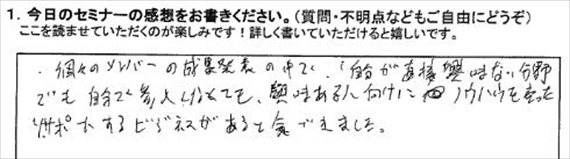 1. 今日のセミナーの感想をお書きください。(質問・不明点などもご自由にどうぞ)
ここを読ませていただくのが楽しみです！詳しく書いていただけると嬉しいです。
・個々のメンバーの成果発表の中で、「自分が直接興味ない分野
でも自分で参入しなくても、興味ある人向けにノウハウを売った
りサポートするビジネスがあると気づきました。